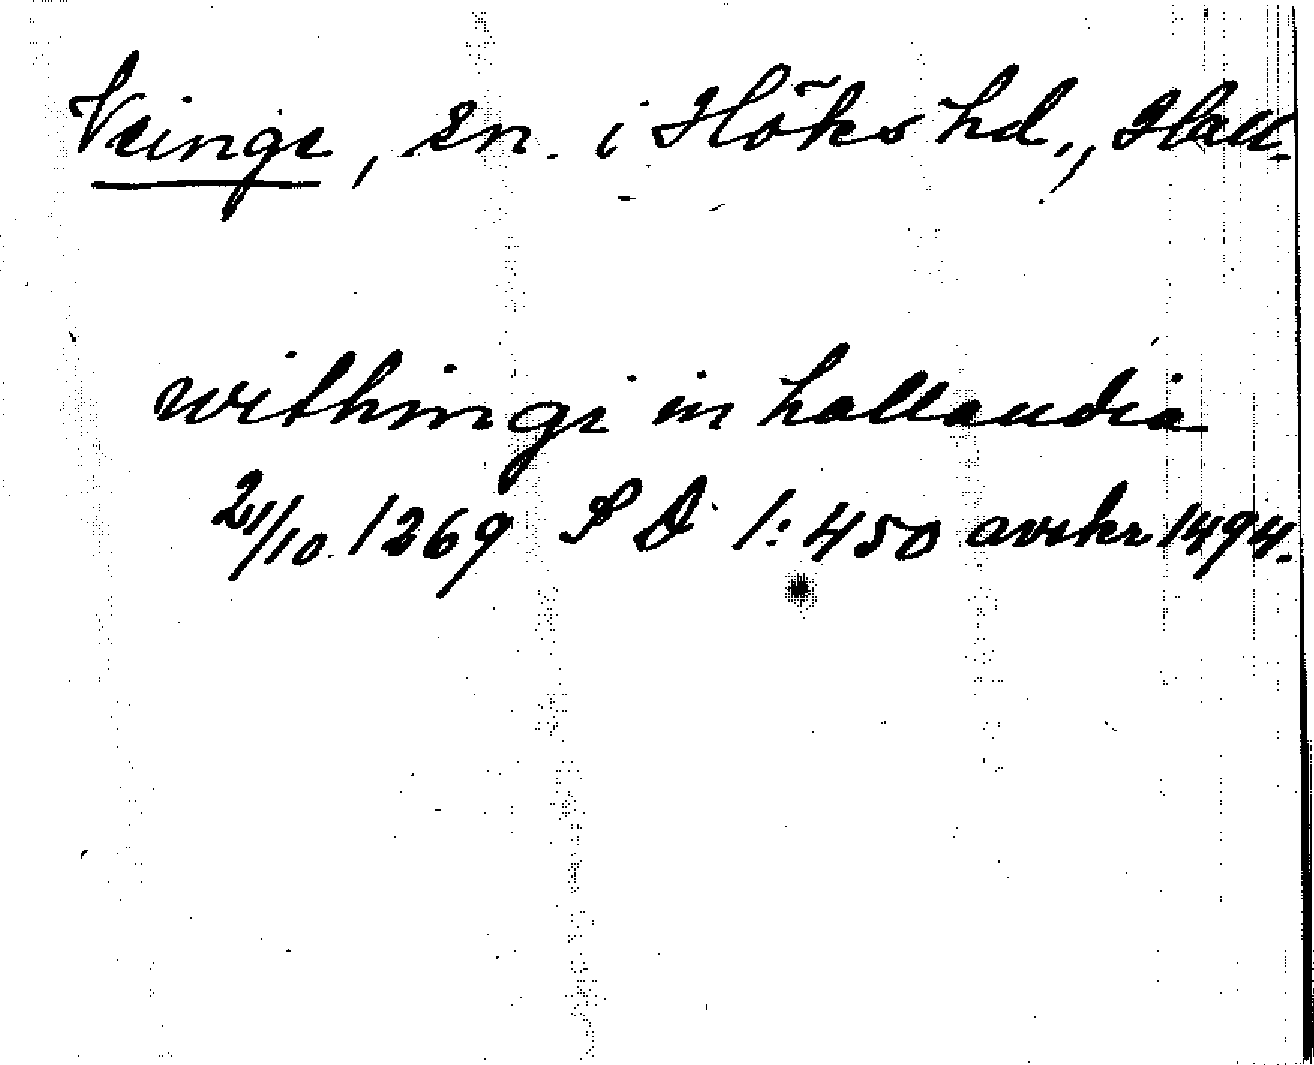 Veinge, sn. i Höks hd., Hall.
withinge in hallandia
21/10 1269 SD 1:450 avskr. 1494.